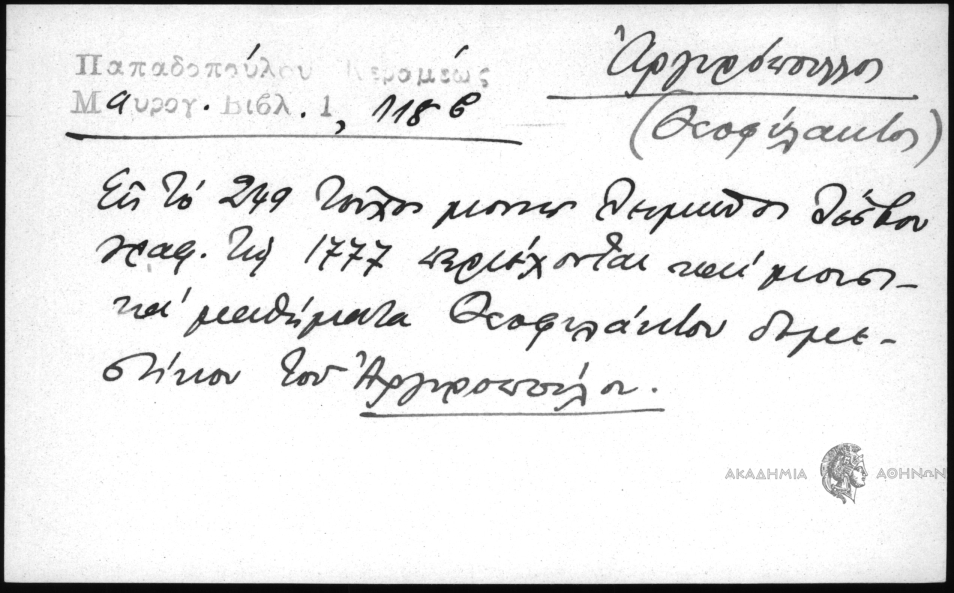 Παπαδοπούλου Κεραμέως
Μαυρογ. Βιβλ. 1, 118 β
Ἀργυρόπουλος
(Θεοφύλακτος)
Εἰς τό 249 τεῦχος μονῆς Λειμῶνος Λέσβου
γραφ. τῷ 1777 περιέχονται καί μουσι-
κά μαθήματα Θεοφυλάκτου δομε-
στίκου τοῦ Ἀργυροπούλου.
ΑΚΑΔΗΜΙΑ ΑΘΗΝΩΝ